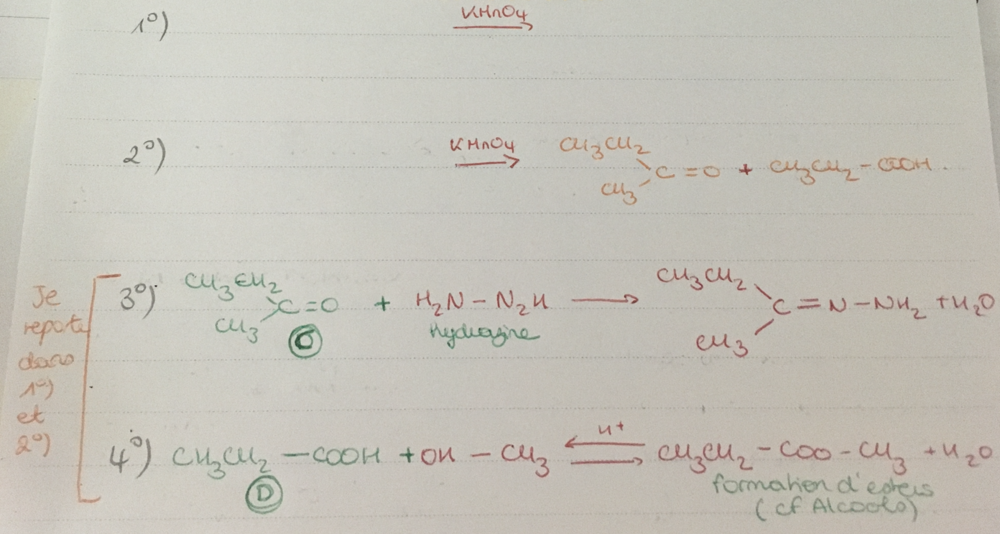 1°) KMnO4
2°) KMnO4 CH3CH2 CH3 C=O + CH3CH2-COOH.
Je reporte dans 1°) et 2°)
3°) CH3CH2 CH3 C=O + H2N-N2H → CH3CH2 CH3 C=N-NH2 + H2O
C Hydrazine
4°) CH3CH2-COOH + OH-CH3 H+ ⇌ CH3CH2-COO-CH3 + H2O
D formation d'esters
(cf Alcools)